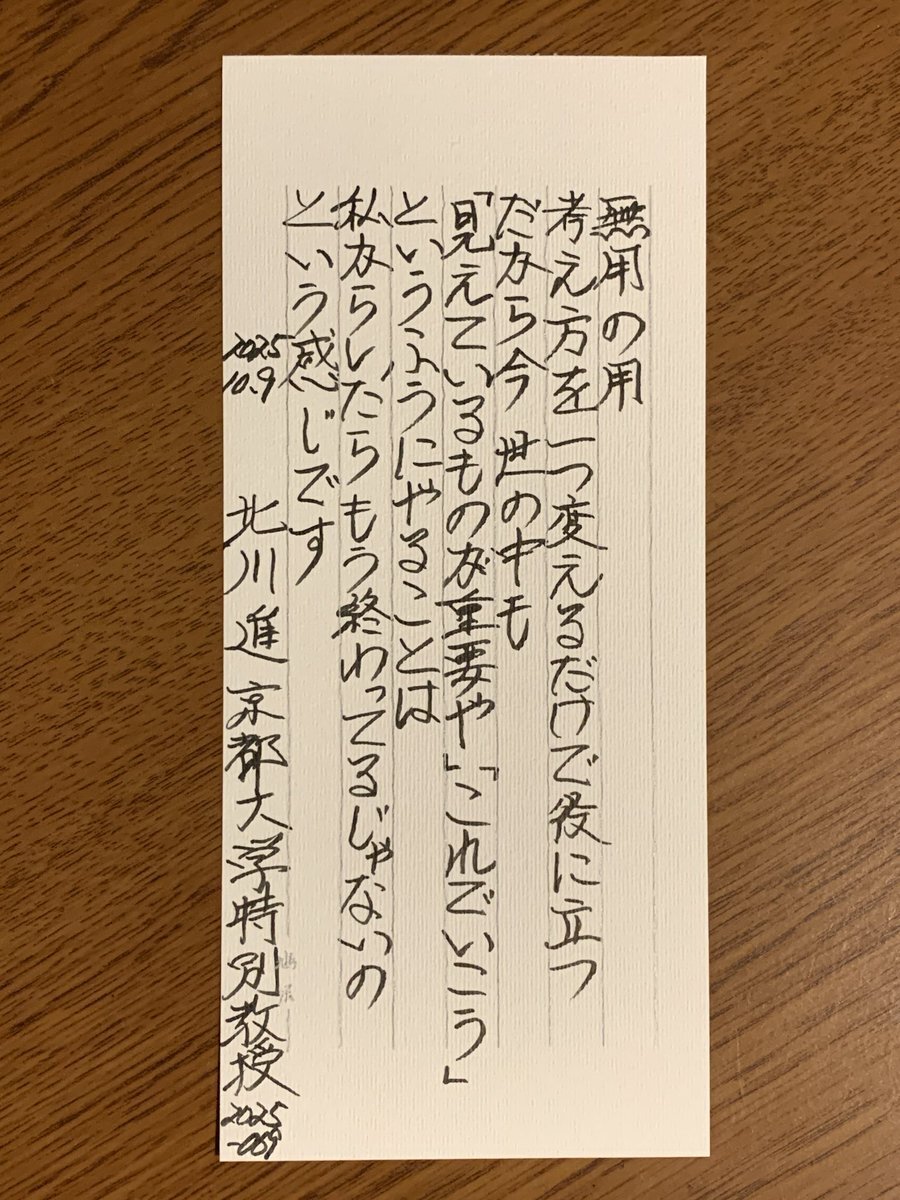 無用の用
考え方を一つ変えるだけで役に立つ
だから今 世の中も
「見えているものが重要や」「これでいこう」
というふうにやることは
私からしたらもう終わってるじゃないの
という感じです
2025
10.9
北川進 京都大学特別教授
2025
-069